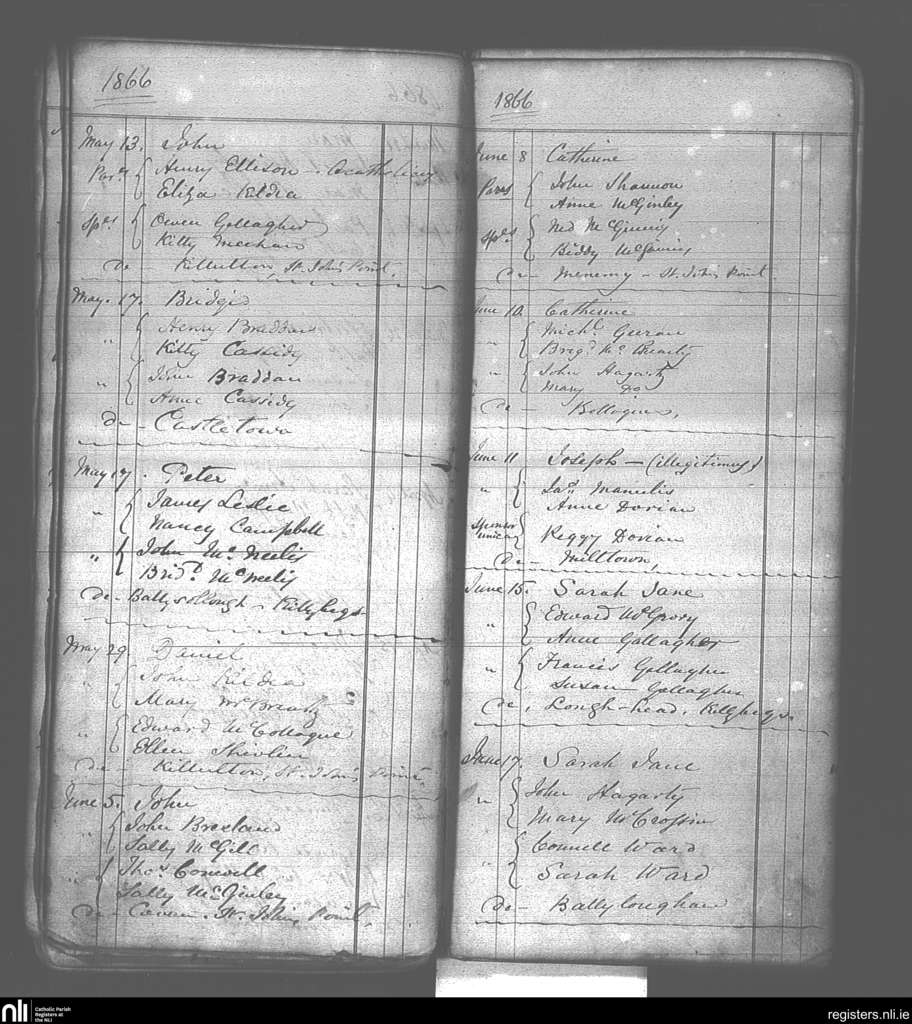 1866
May 13. John
Par.s Henry Ellison
Eliza Kildea
Sp.rs Owen Gallagher
Kitty Meehan
De - Killultan, St. John's Point.
May. 17. Bridget
" Henry Braddan
Kitty Cassidy
" John Braddan
Anne Cassidy
De - Castletown
May 17. Peter
" James Leslie
Nancy Campbell
" John Mc. Neelis
Brid.t McNeelis
De - Killybegs
May 29. Daniel
" John Kildea
Mary McBrearty
" Edward McCollogue
Ellen Shevlin
De - Killultan, St. John's Point.
June 5. John
" John Breeland
Sally McGill
" Tho.s Conwell
Sally McGinley
De - St. John's Point
1866
June 8 Catherine
Pars John Shannon
Anne McGinley
Sp.rs Ned McGinniss
Biddy McGinniss
De - St. John's Point.
June 10. Catherine
" Mich.l Geeran
Brig.t Mc. Brearty
" John Hagarty
Mary Do
De -
June 11 Joseph - (illegitimus)
" Ja.s Manelis
Anne Dorian
Sponsor unica Peggy Dorian
De - Milltown,
June 15. Sarah Jane
" Edward McGrory
Anne Gallagher
" Francis Gallagher
Susan Gallagher
De, Lough-head, Killybegs.
June 17. Sarah Jane
" John Hagarty
Mary McCrossin
" Connell Ward
Sarah Ward
De - Ballyloughan
nli
Catholic Parish
Registers at
the NLI
registers.nli.ie